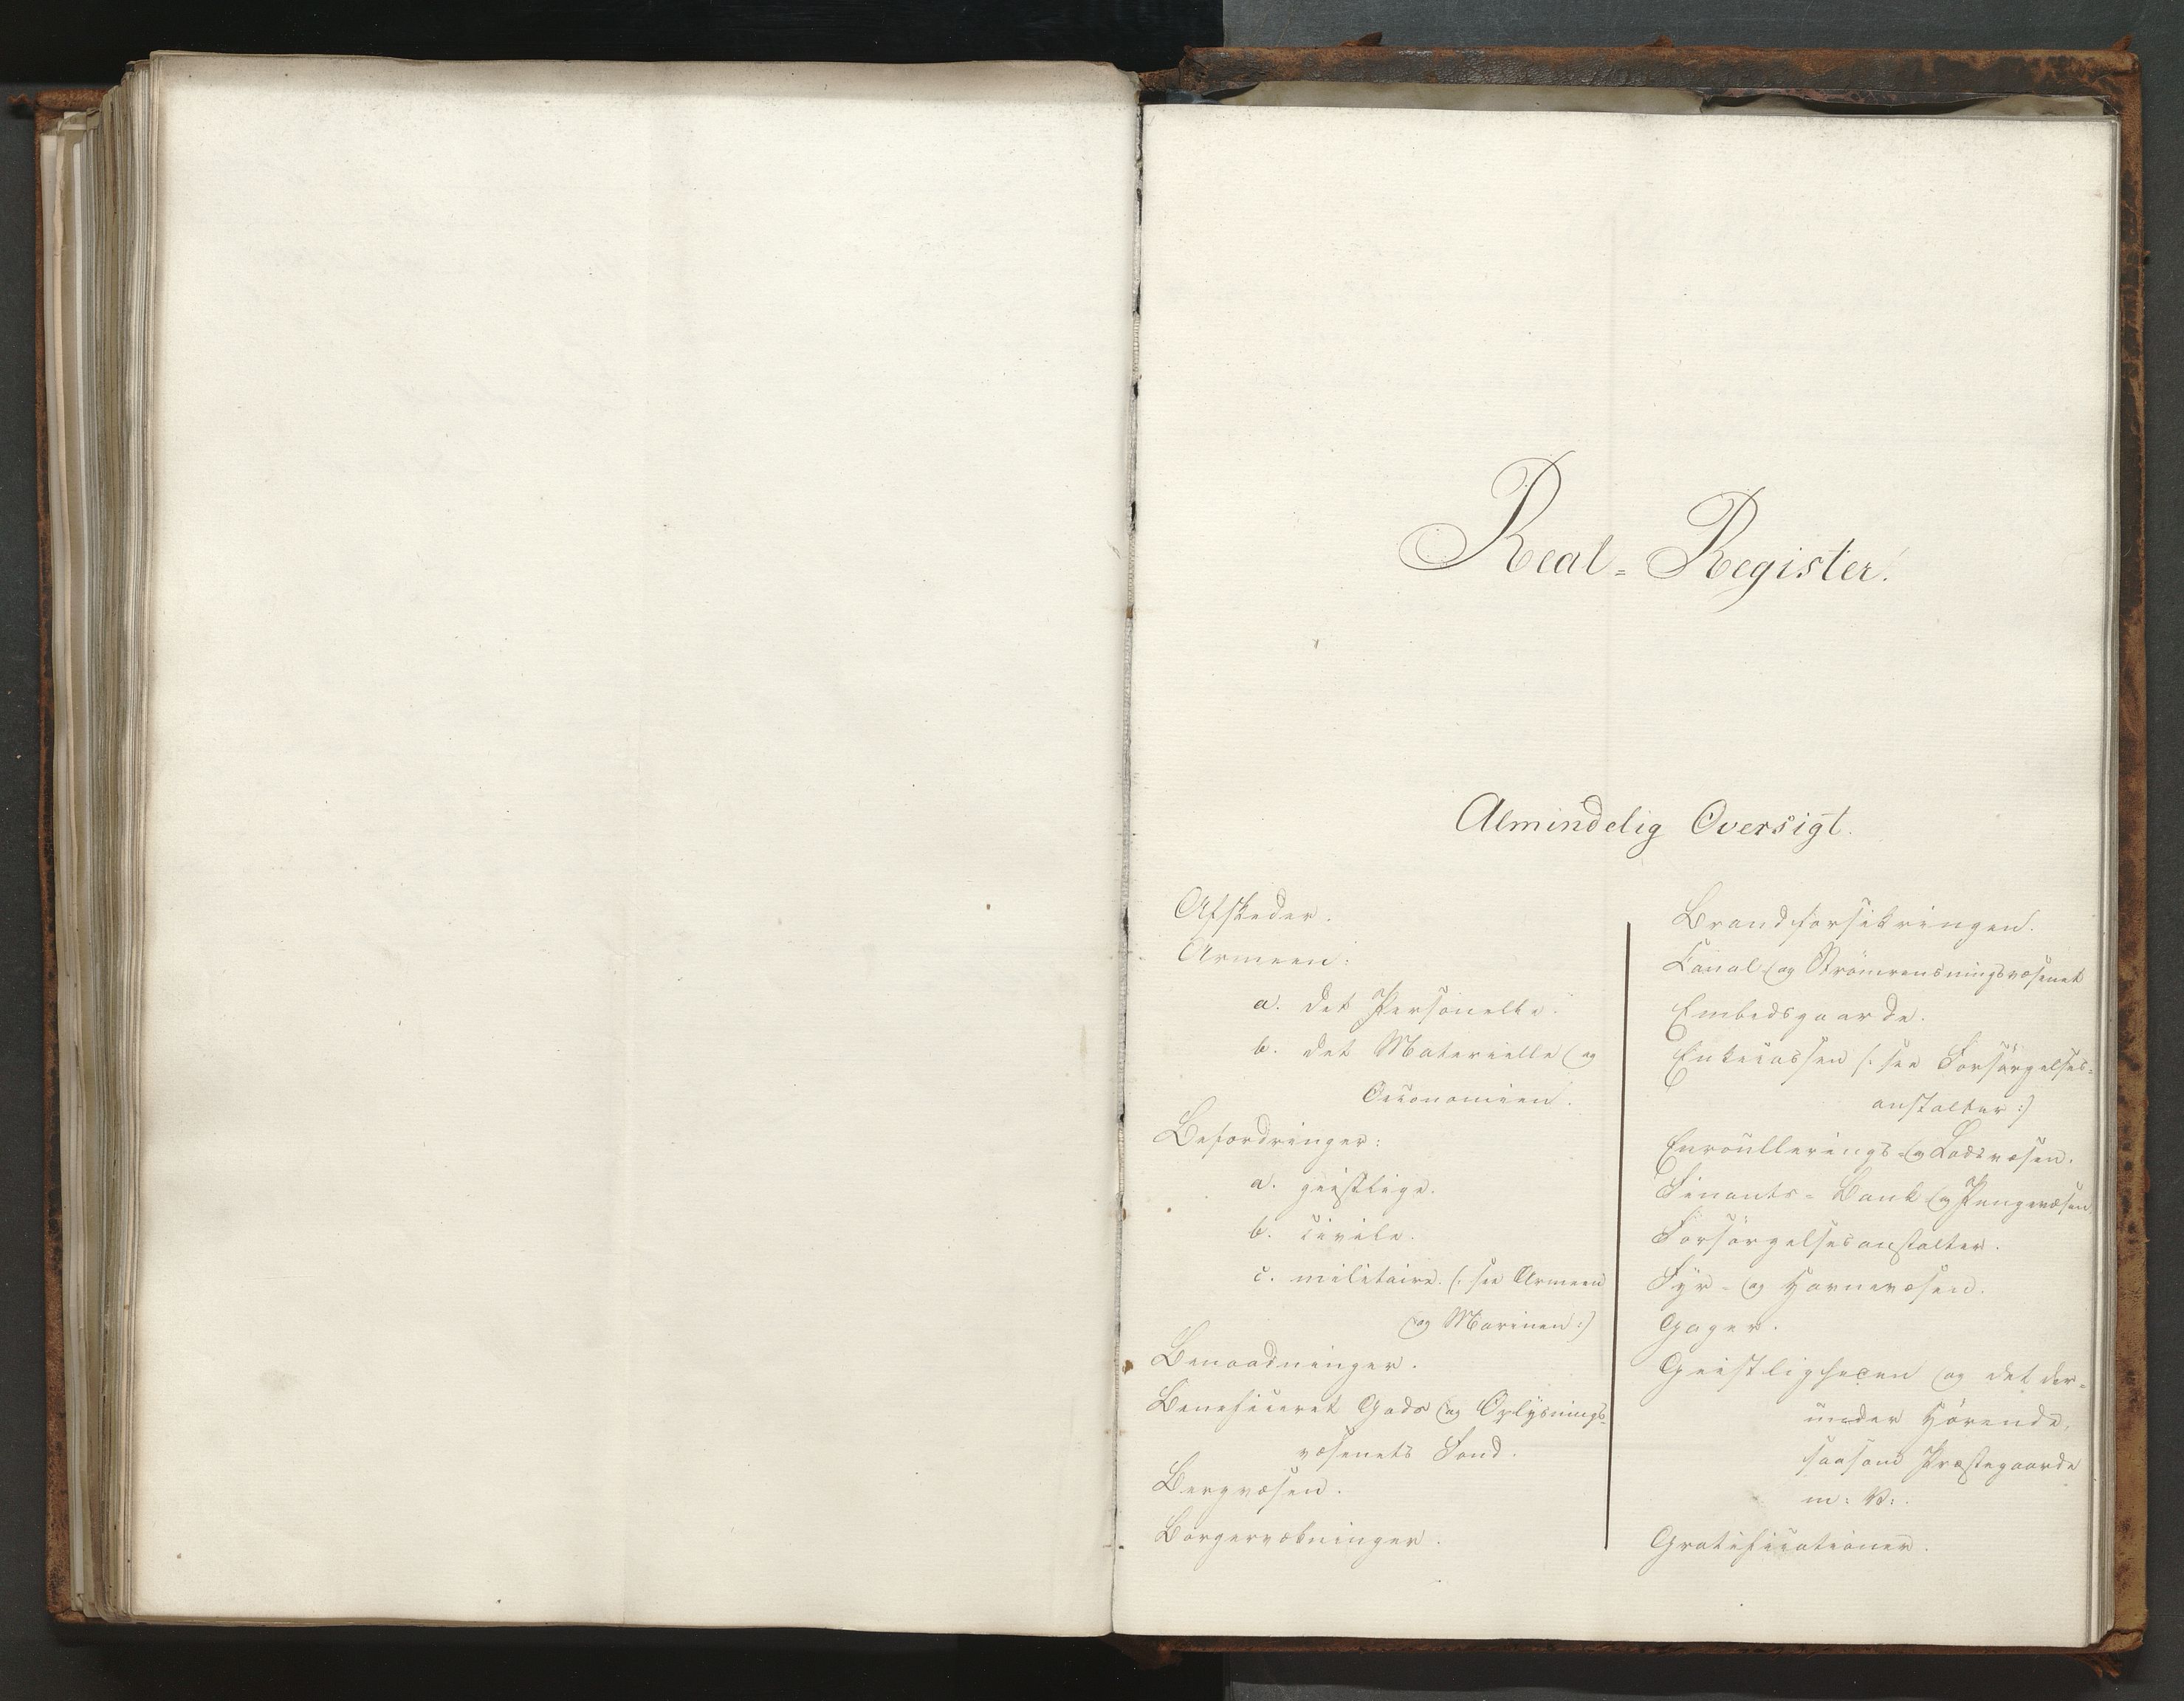 Real-Register.
Almindelig Oversigt.
Afskeder.
Armeen:
a. det Personelle.
b. det Materielle og
Oeconomien.
Befordringer:
a. geistlige.
b. civile.
c. militaire. (: see Armeen
og Marinen :)
Benaadninger.
Beneficeret Gods og Oplysnings-
væsenets Fond.
Bergvæsen.
Borgervæbninger.
Brandforsikringen.
Canal- og Strömrensningsvæsenet
Embedsgaarde.
Enkecassen (: see Forsörgelses-
anstalter :)
Enroullerings- og Lodsvæsen.
Finants- Bank og Pengevæsen.
Forsörgelsesanstalter.
Fyr- og Havnevæsen.
Gager.
Geistligheden og det der-
under Hörende,
saasom Præstegaarde
m: V:.
Gratificationer.